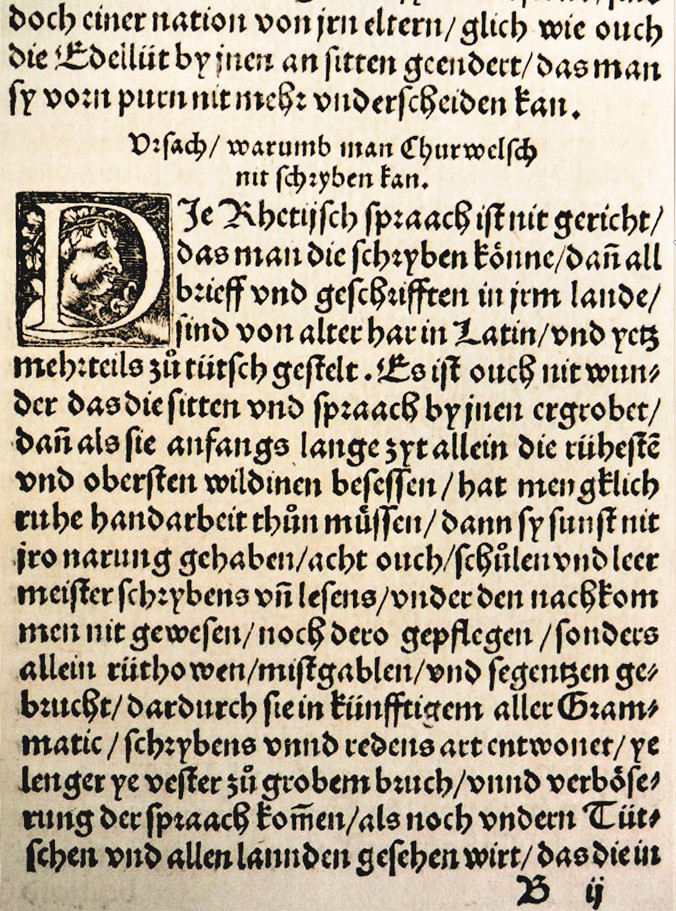 doch einer nation von jrn eltern/ glich wie ouch
die Edellüt by jnen an sitten geendert/ das man
sy vorn purn nit mehr vnderscheiden kan.
Vrsach/ warumb man Churwelsch
nit schryben kan.
DJe Rhetijsch spraach ist nit gericht/
das man die schryben könne/ dañ all
brieff vnd geschrifften in jrm lande/
sind von alter har in Latin/ vnd yetz
mehrteils zů tütsch gestelt. Es ist ouch nit wun⸗
der das die sitten vnd spraach by jnen ergrobet/
dañ als sie anfangs lange zyt allein die rühestē
vnd obersten wildinen besessen/ hat mengklich
ruhe handarbeit thůn müssen/ dann sy sunst nit
jro narung gehaben/ acht ouch/ schůlen vnd leer
meister schrybens vñ lesens/ vnder den nachkom
men nit gewesen/ noch dero gepflegen/ sonders
allein rüthowen/ mistgablen/ vnd segentzen ge⸗
brucht/ dardurch sie in künfftigem aller Gram⸗
matic/ schrybens vnnd redens art entwonet/ ye
lenger ye vester zů grobem bruch/ vnnd verböse⸗
rung der spraach kom̃en/ als noch vndern Tüt⸗
schen vnd allen lannden gesehen wirt/ das die in
B ij